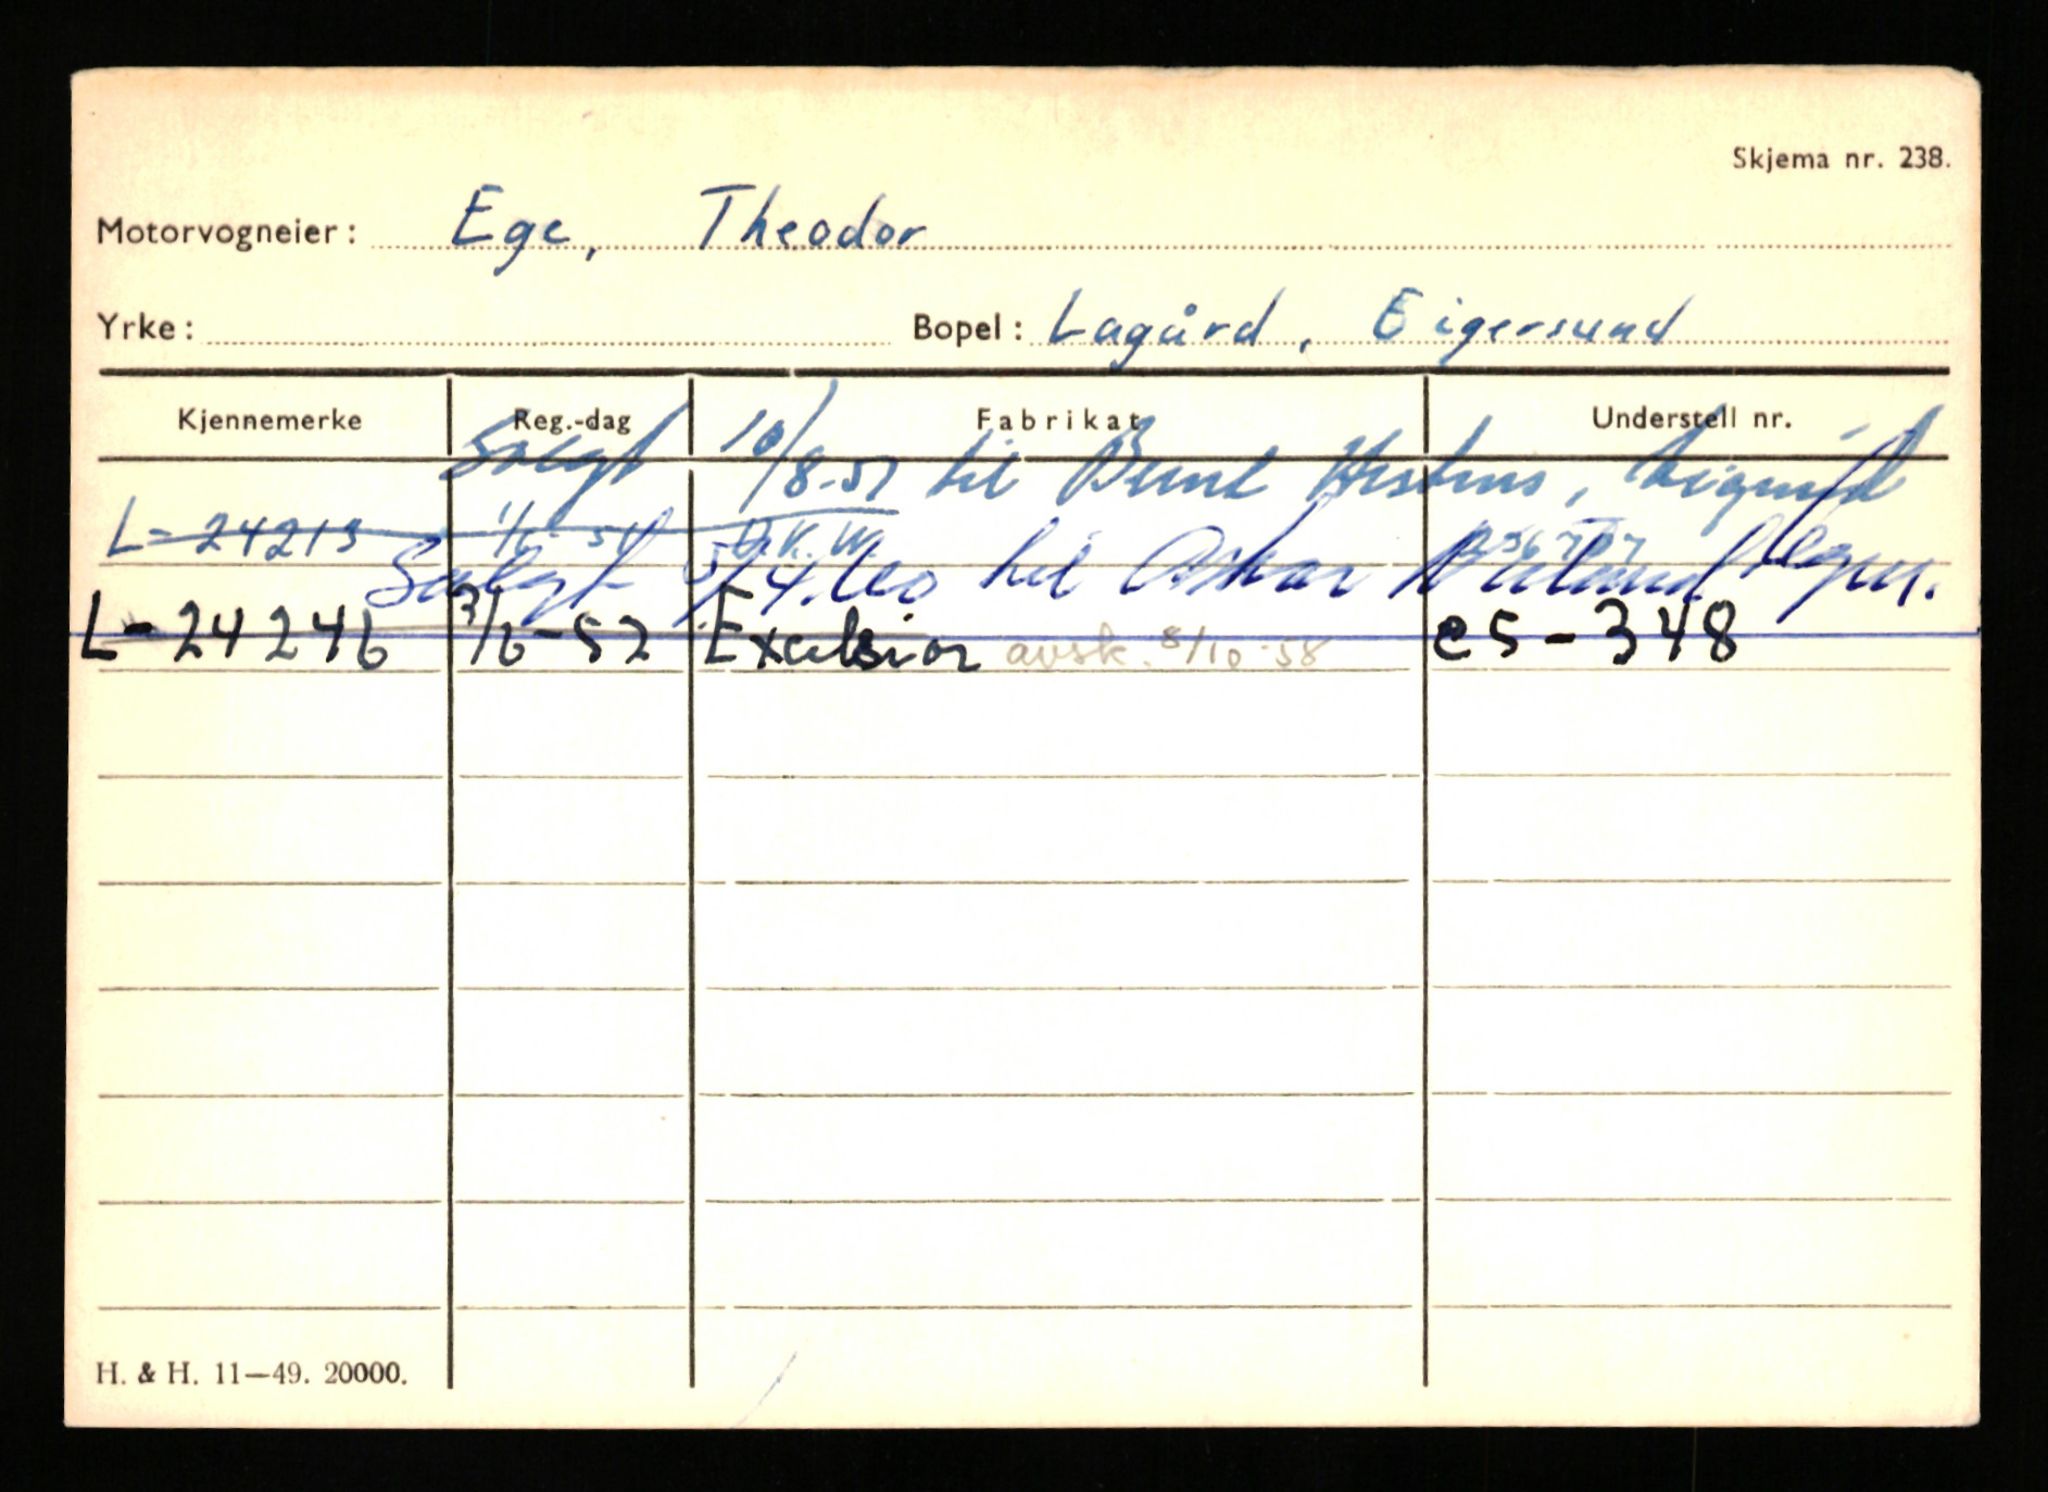 Skjema nr. 238.
Motorvogneier: Ege, Theodor
Yrke: Bopel: Lagård, Eigersund
Kjennemerke Reg.-dag Fabrikat Understell nr.
Solgt 10/8-51 til Bernt
L-24213 D.K.W.
Solgt 5/4.60 til Oskar
L-24246 3/6-52 Excelsior avsk. 8/10-58 es-348
H. & H. 11—49. 20000.